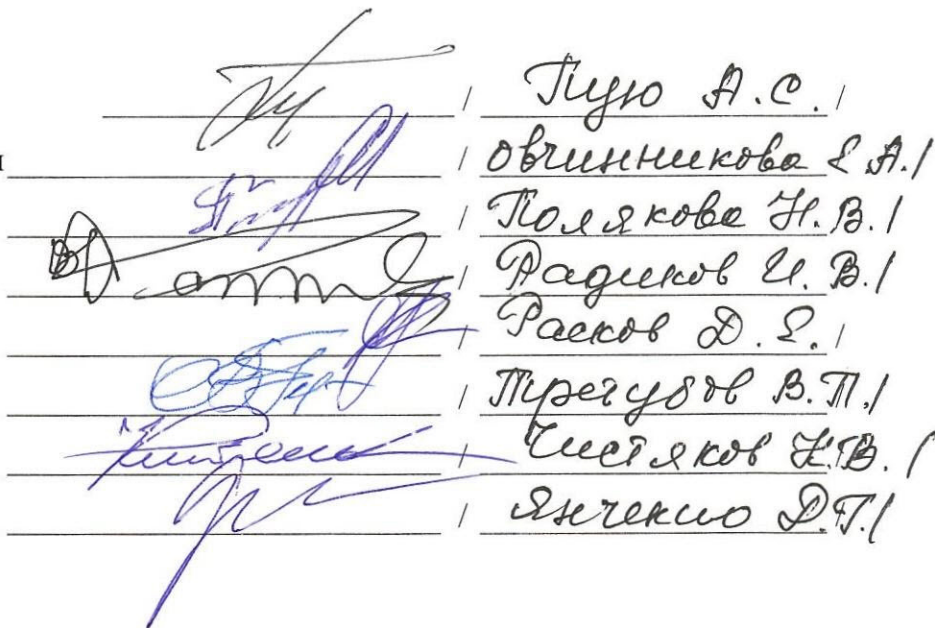 / Пую А.С. /
/ Овчинникова Е.А. /
/ Полякова Н.В. /
/ Радиков И.В. /
/ Расков Д.Е. /
/ Трегубов В.П. /
/ Чистяков К.В. /
/ Янченко Д.Г. /